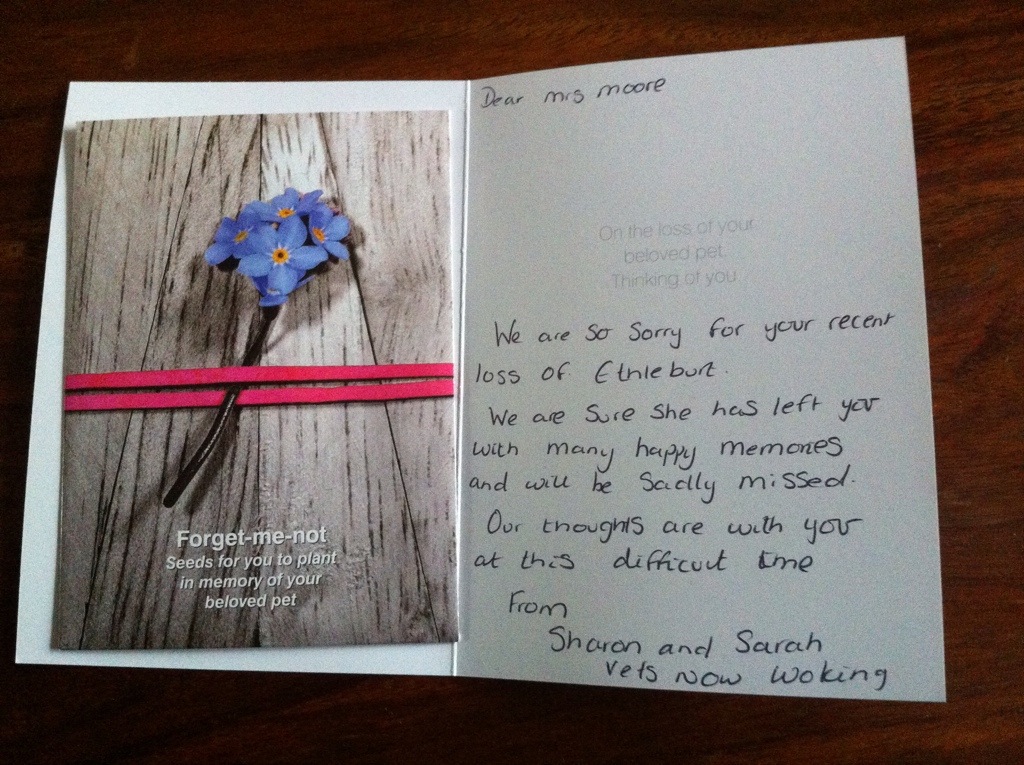 Forget-me-not
Seeds for you to plant
in memory of your
beloved pet
Dear mrs moore
On the loss of your
beloved pet.
Thinking of you
We are so sorry for your recent
loss of Ethleburt.
We are sure she has left you
with many happy memories
and will be sadly missed.
Our thoughts are with you
at this difficult time
From
Sharon and Sarah
Vets Now Woking